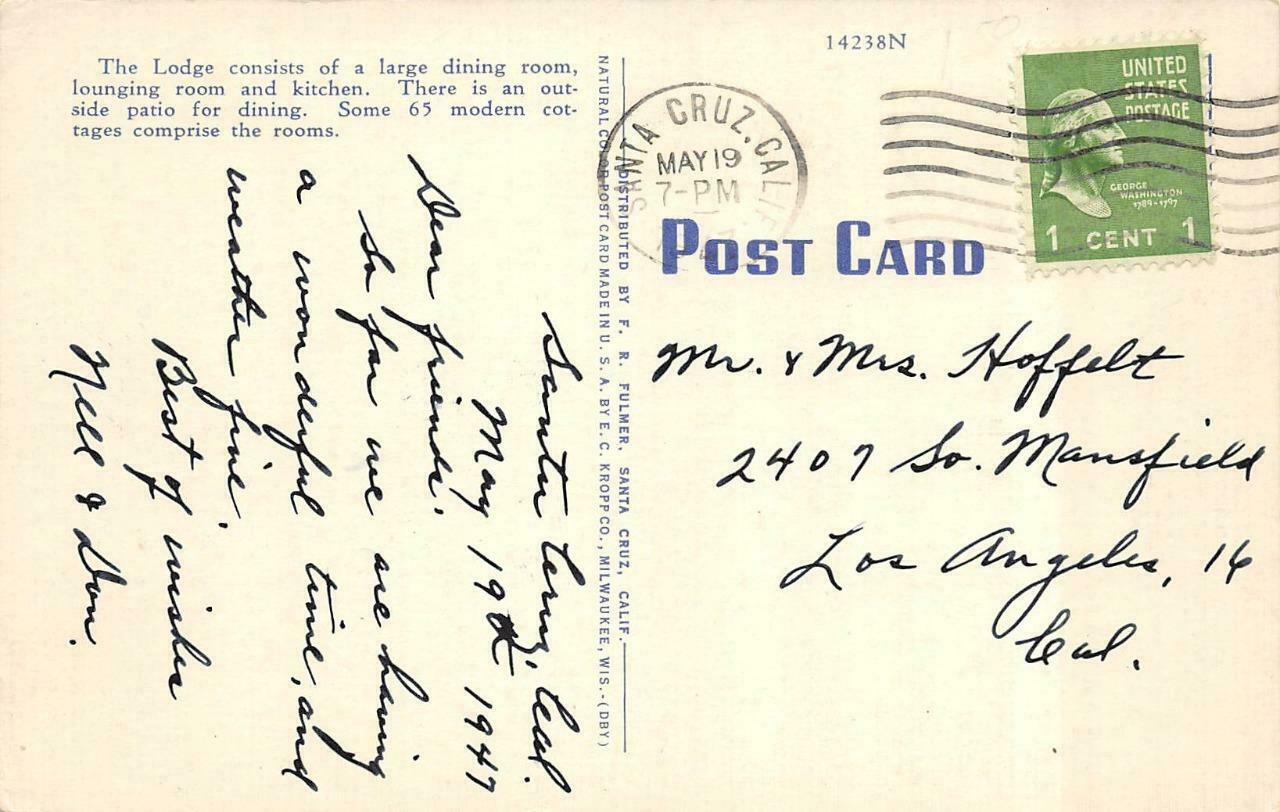 The Lodge consists of a large dining room,
lounging room and kitchen. There is an out-
side patio for dining. Some 65 modern cot-
tages comprise the rooms.
Santa Cruz, Cal.
May 19th 1947
Dear friends.
So far we are having
a wonderful time, and
weather fine.
Best of wishes
Nell & Don.
NATURAL COLOR POST CARD MADE IN U. S. A. BY E. C. KROPP CO., MILWAUKEE, WIS.-(DBY)
DISTRIBUTED BY F. R. FULMER, SANTA CRUZ, CALIF.
14238N
SANTA CRUZ, CALIF.
MAY 19
7-PM
UNITED
STATES
POSTAGE
GEORGE
WASHINGTON
1789-1797
1 CENT 1
POST CARD
Mr. & Mrs. Hoffelt
2407 So. Mansfield
Los Angeles, 16
Cal.